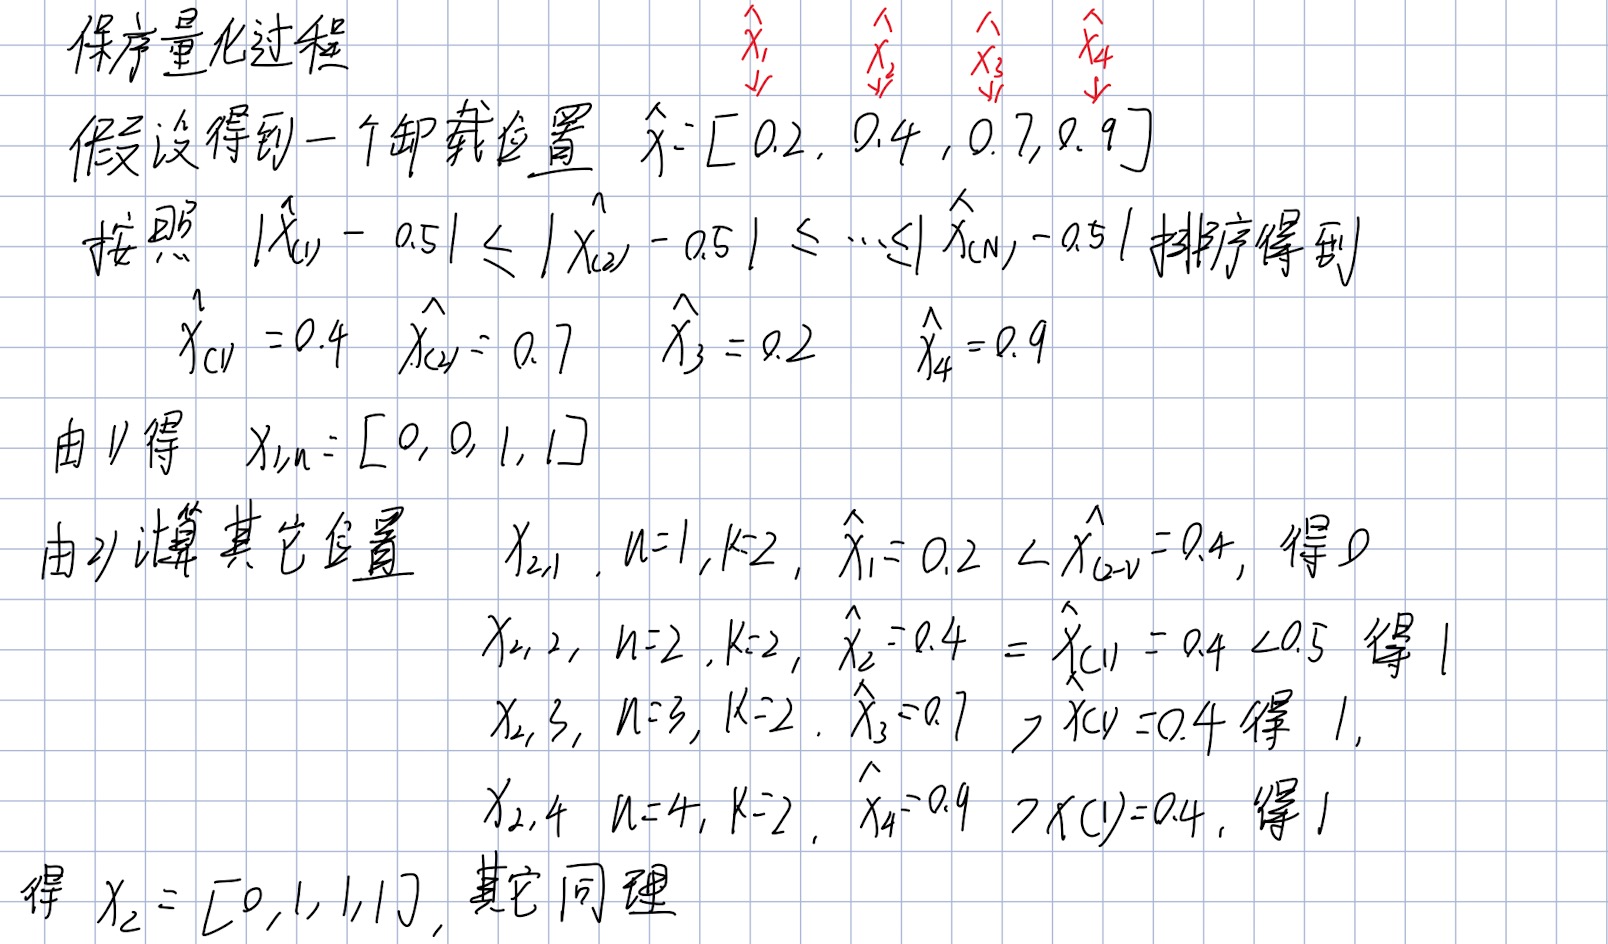 x̂₁ x̂₂ x̂₃ x̂₄
↓ ↓ ↓ ↓
保序量化过程
假设得到一个卸载位置 x̂=[0.2, 0.4, 0.7, 0.9]
按照 |x̂₍₁₎ - 0.5| ≤ |x̂₍₂₎ - 0.5| ≤ … ≤ |x̂₍N₎ - 0.5| 排序得到
x̂₍₁₎ = 0.4 x̂₍₂₎ = 0.7 x̂₃ = 0.2 x̂₄ = 0.9
由1)得 x₁,ₙ = [0, 0, 1, 1]
由2)计算其它位置 x₂,₁, n=1, k=2, x̂₁=0.2 < x̂₍₂₋₁₎=0.4, 得0
x₂,₂, n=2, k=2, x̂₂=0.4 = x̂₍₁₎ = 0.4 <0.5 得1
x₂,₃, n=3, k=2, x̂₃=0.7 > x̂₍₁₎=0.4 得 1,
x₂,₄ n=4, k=2, x̂₄=0.9 > x(1)=0.4, 得1
得 x₂ = [0, 1, 1, 1], 其它同理